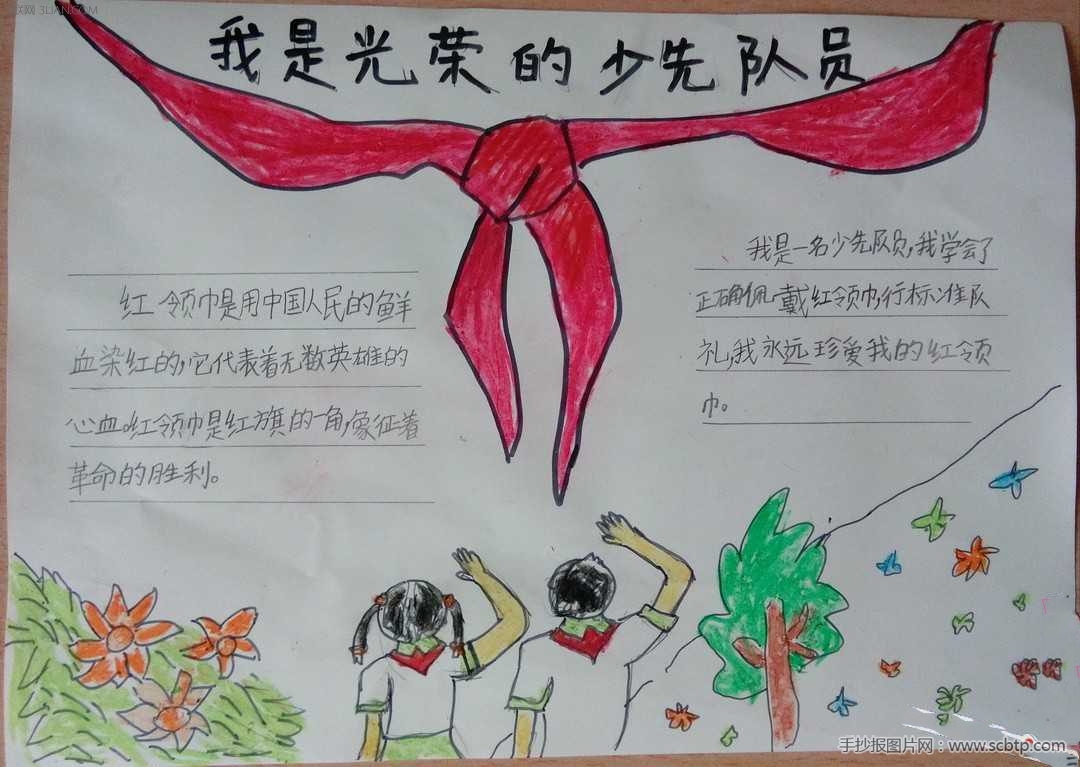 我是光荣的少先队员
红领巾是用中国人民的鲜
血染红的,它代表着无数英雄的
心血。红领巾是红旗的一角,象征着
革命的胜利。
我是一名少先队员,我学会了
正确佩戴红领巾,行标准队
礼,我永远珍爱我的红领
巾。
手抄报图片网:www.scbtp.com